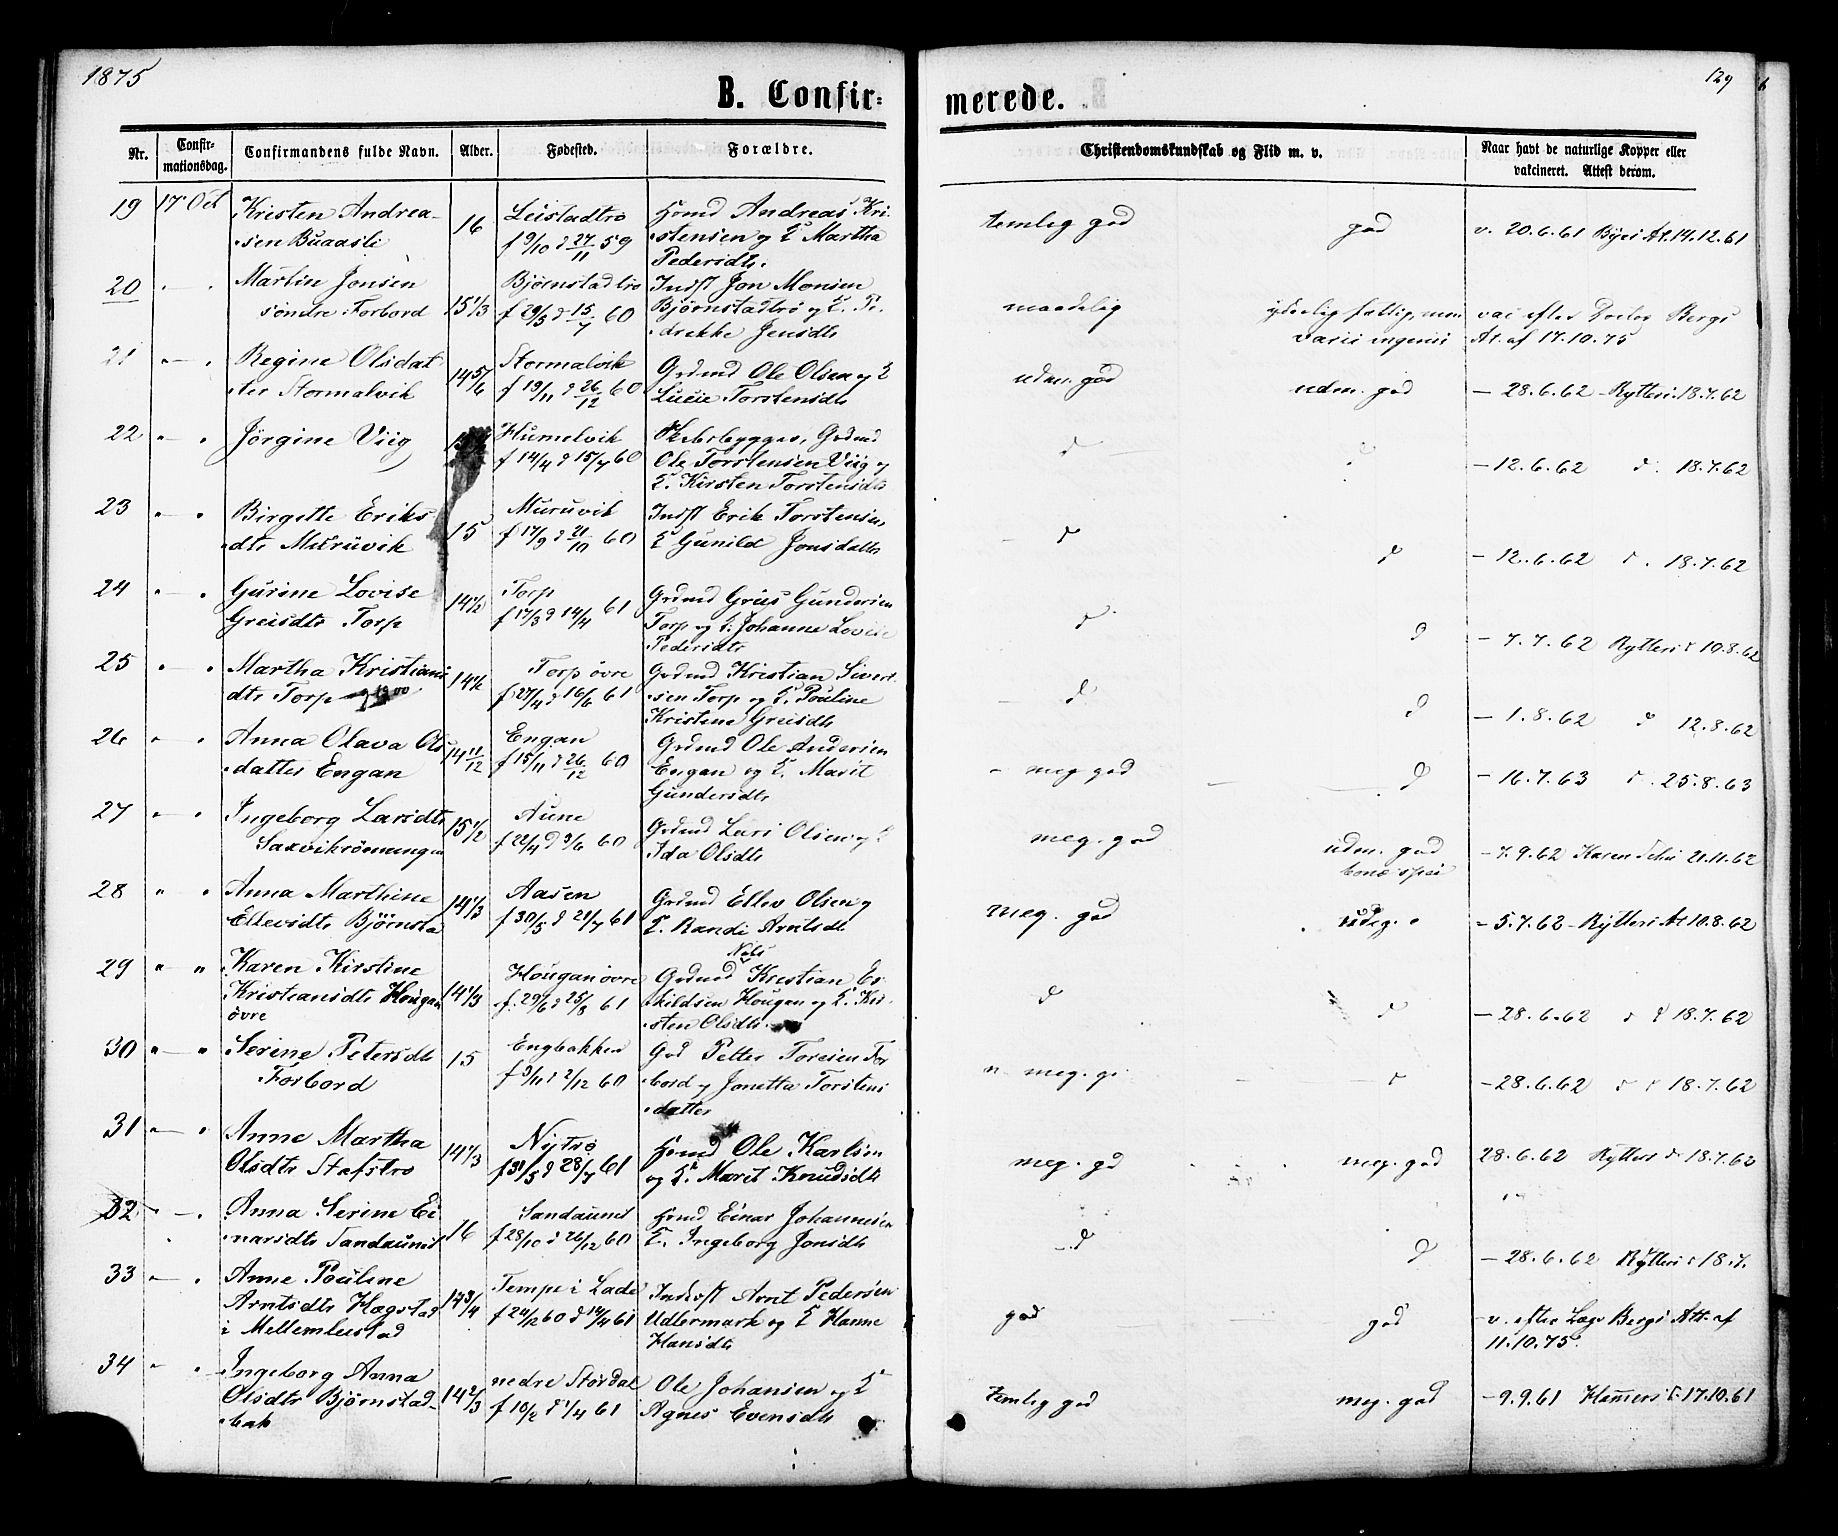 1875
129
B. Confir-
merede.
Nr.
Confir-
mationsdag.
Confirmandens fulde Navn.
Alder.
Fødested.
Forældre.
Christendomskundskab og Flid m. v.
Naar havt de naturlige Kopper eller
vakcineret. Attest derom.
19 17 Oct Kristen Andrea- 16 Leistadtrø Hmd Andreas Kri- temlig god god v. 20.6.61 At. 14.12.61
sen Buaasli f 9/10 d 27/11 59 stensen og K Martha
Pedersdtr.
20 Martin Jonsen 15 1/3 Bjørnstadtrø Indst Jon Monsen maadelig vac efter Doctor Bergs
søndre Forbord f 29/5 d 15/7 60 Bjørnstadtrø og K. Fre- At. af 17.10.75
drekke Jensdtr
21 Regine Olsdat- 14 5/6 Stormalvik Grdmd Ole Olsen og K udm. god udm. god - 28.6.62 - Rytters. 18.7.62
ter Stormalvik f 19/11 d 26/12 60 Torstensdtr
22 Jørgine Viig Humelvik Grdmd d - 12.6.62 d. 18.7.62
f 14/4 d 15/7 60 Ole Torstensen Viig og
K. Kirsten Torstensdtr
23 Birgitte Eriks- 15 Muruvik Indst Erik Torstensen, d d - 12.6.62 d. 18.7.62
dtr Muruvik f 17/9 d 21/10 60 K Gunild Jonsdatter
24 Gurine Lovise 14 1/2 Torp Grdmd Greis Gundersen d d - 7.7.62 Rytters d 10.8.62
Greisdtr Torp f 17/3 d 14/4 61 Torp og K. Johanne Lovise
Pedersdtr
25 Martha Kristians- 14 1/2 Torp øvre Grdmd Kristian Sivert- d d - 1.8.62 d 12.8.62
dtr Torp f 27/4 d 16/6 61 sen Torp og K. Pouline
Kristine Greisdtr
26 Anna Olava Ols- 14 11/12 Engan Grdmd Ole Andersen - meg god d - 16.7.63 d. 25.8.63
datter Engan f 15/11 d 26/12 60 Engan og K. Marit
Gundersdtr
27 Ingeborg Larsdtr 15 1/2 Aune Grdmd Lars Olsen og K meg. god udm. god - 7.9.62 Karen 21.11.62
f 22/4 d 3/6 60 Ida Olsdtr bonæ spei
28 Anna Marthine 14 1/3 Aasen Grdmd Ellev Olsen og meg. god - 5.7.62 - Rytters At 10.8.62
Ellevsdtr Bjørnsta f 30/5 d 21/7 61 K. Randi Arntsdtr
29 Karen Kirstine 14 1/3 Hougan øvre Grdmd Nels Kristian Es- d d - 28.6.62 d d 18.7.62
Kristiansdtr Hougan f. 29/6 d 25/8 61 kildsen Hougen og K. Kir-
øvre sten Olsdtr.
30 Serine Petersdtr 15 Engbakken Petter Toresen For- meg. g. d - 28.6.62 d d 18.7.62
Forbord f 3/11 d 2/12 60 bord og Jonetta Torstens-
datter
31 Anne Martha 14 1/3 Nytrø Hmd Ole Karlsen meg. gd meg. god 28.6.62 Rytters d 18.7.62
Olsdtr Stafstrø f 31/5 d 28/7 61 og K. Marit Knudsdtr
32 Anna Serine Ei- 16 Sandaunet Hmd Einar Johannesen d d - 28.6.62 Rytters d 18.7.
narsdtr Sandaunet f 28/10 d 26/12 60 K. Ingeborg Jonsdtr
33 Anne Pouline 14 3/4 Tempe i Lade Arnt Pedersen god god - v. efter Læge Bergs Att. af
Arntsdtr Hagstad f 24/12 60 d 14/4 61 Udlermark og K Hanne 11.10.75.
i Mellemleistad Hansdtr
34 Ingeborg Anna 14 2/3 nedre Størdal Ole Johansen og K temlig god meg. god - 9.9.61 Hamers d. 17.10.61
Olsdtr Bjørnstad- f 10/2 d 1/4 61 Agnes Evensdtr
bak